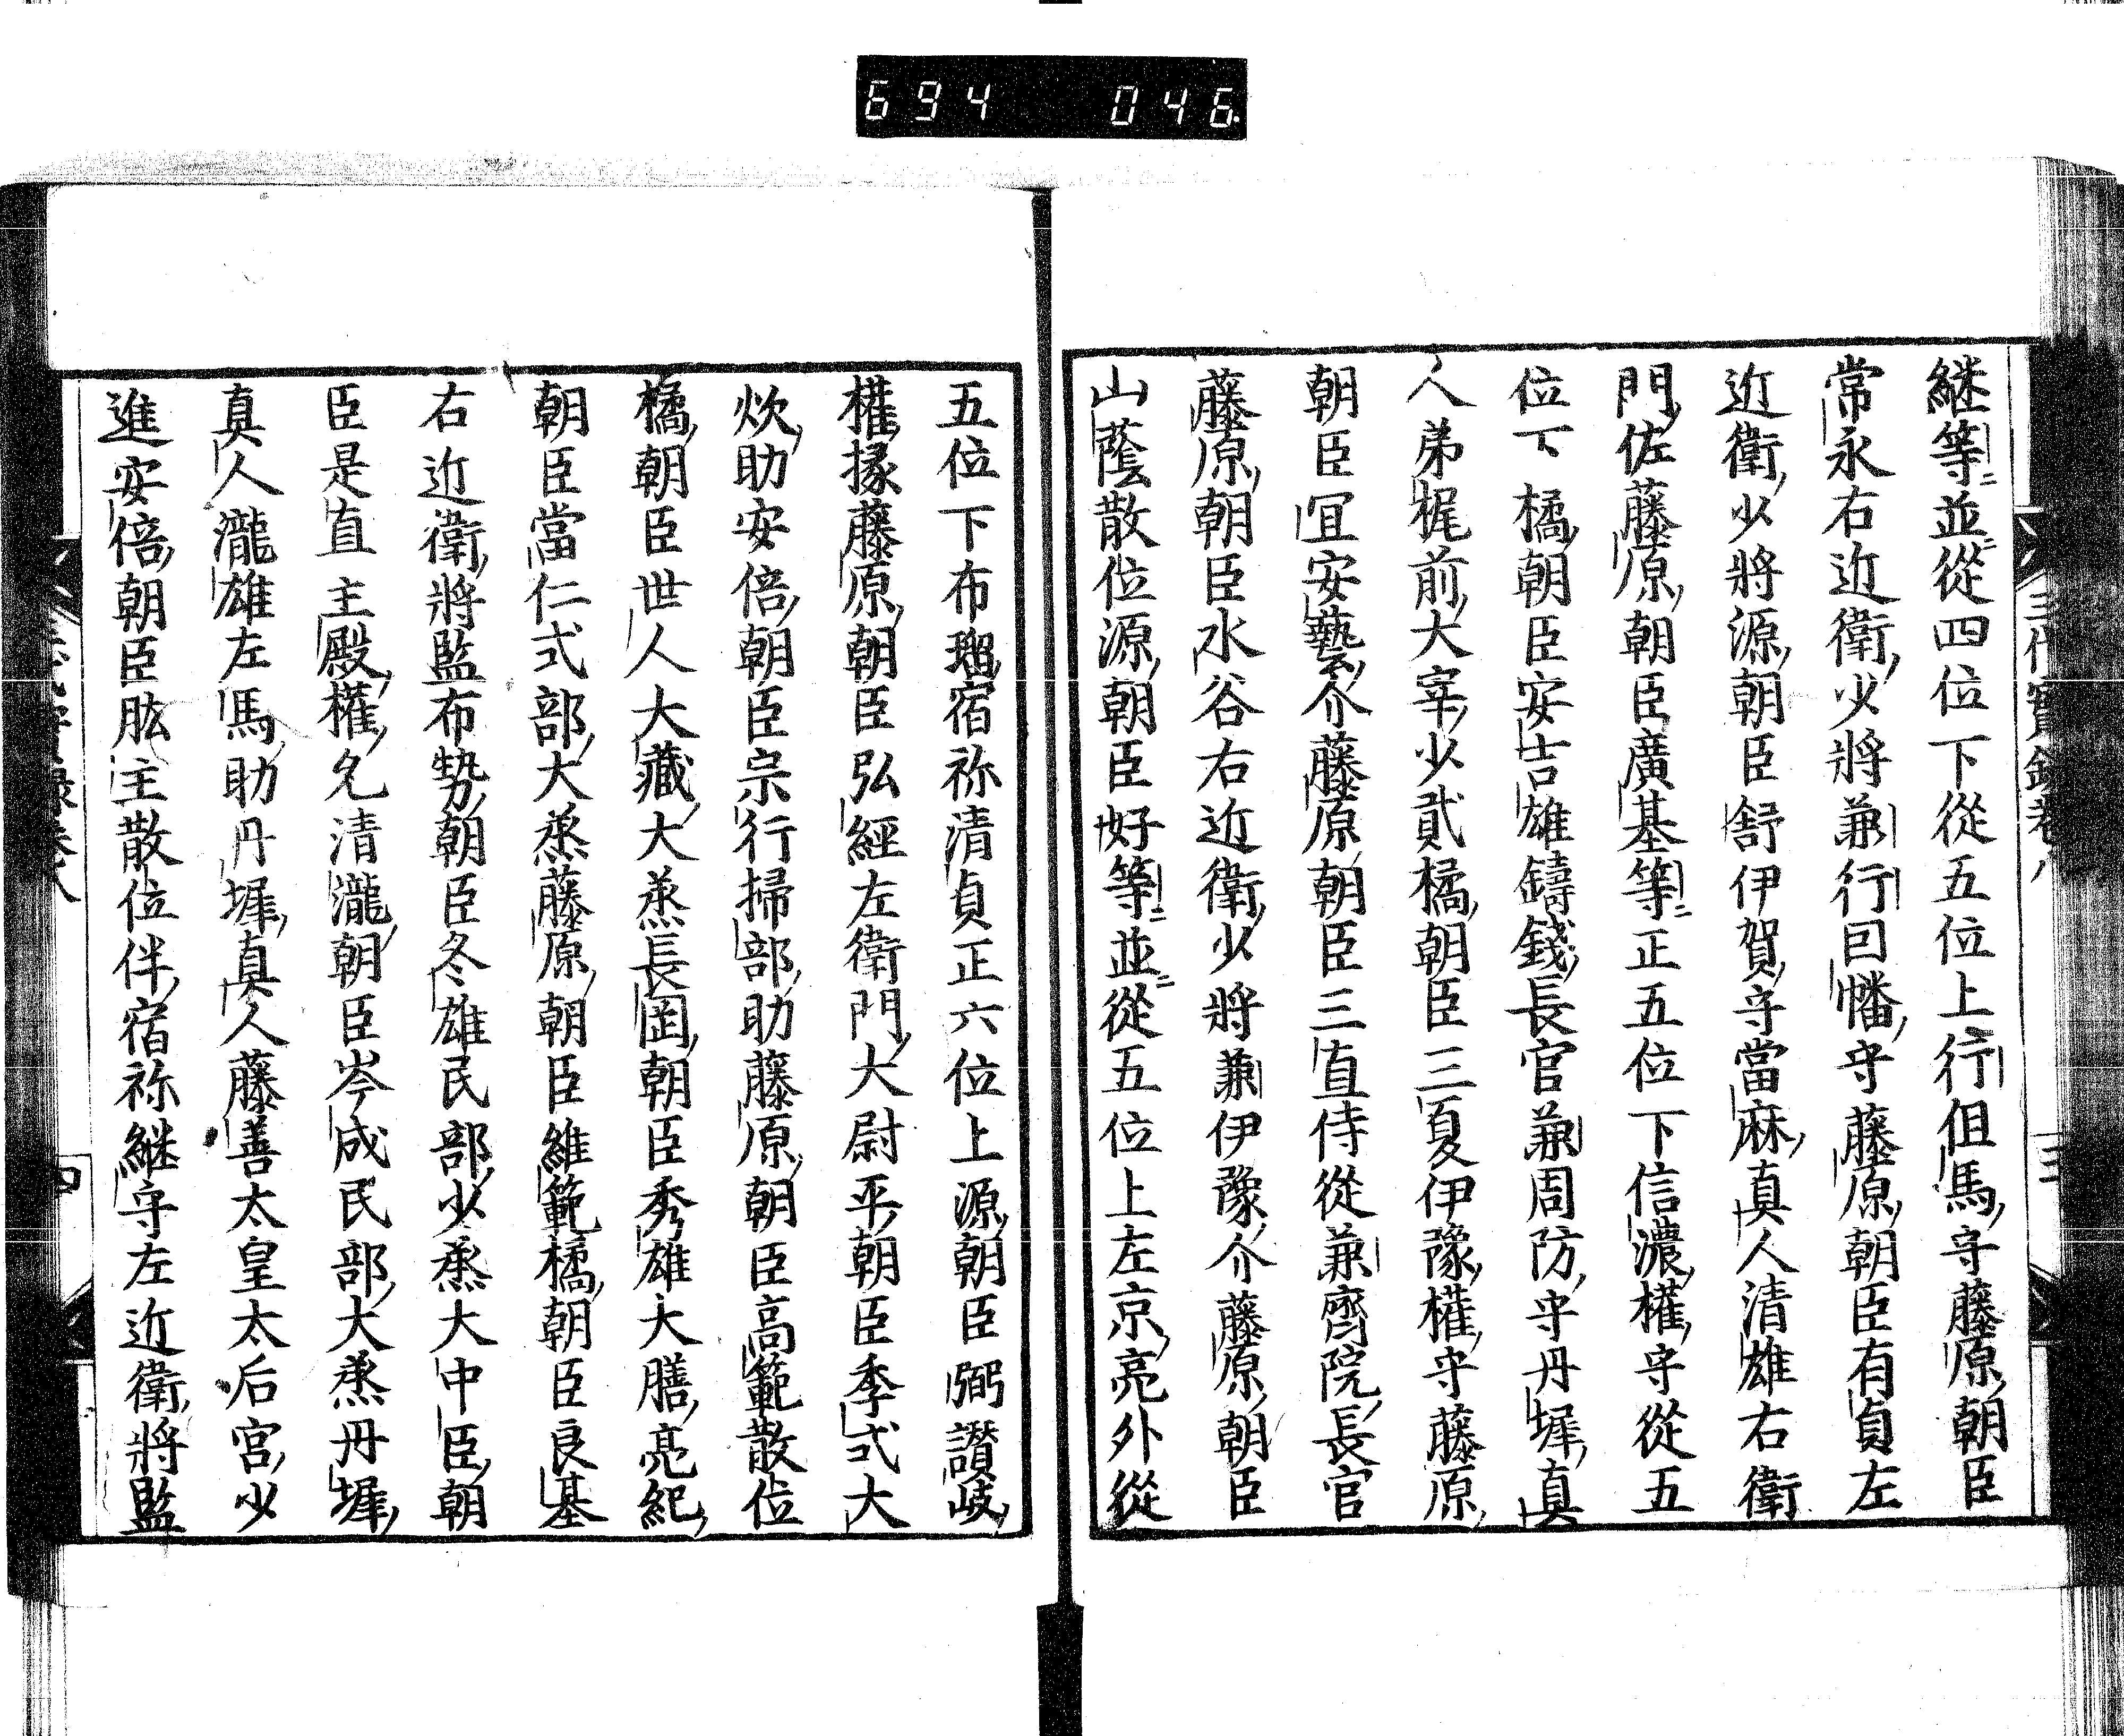 694 046
三代實錄卷八
三
継等並從四位下從五位上行但馬守藤原朝臣
常永右近衛少將兼行因幡守藤原朝臣有貞左
近衛少將源朝臣舒伊賀守當麻真人清雄右衛
門佐藤原朝臣廣基等正五位下信濃權守從五
位下橘朝臣安吉雄鑄錢長官兼周防守丹墀真
人弟梶前大宰少貳橘朝臣三夏伊豫權守藤原
朝臣冝安藝介藤原朝臣三直侍從兼齊院長官
藤原朝臣水谷右近衛少將兼伊豫介藤原朝臣
山蔭散位源朝臣好等並從五位上左京亮外從
五位下布瑠宿祢清貞正六位上源朝臣弼讃岐
權掾藤原朝臣弘經左衛門大尉平朝臣季式大
炊助安倍朝臣宗行掃部助藤原朝臣高範散位
橘朝臣世人大藏大烝長岡朝臣秀雄大膳亮紀
朝臣當仁式部大烝藤原朝臣維範橘朝臣良基
右近衛將監布勢朝臣冬雄民部少烝大中臣朝
臣是直主殿權允清瀧朝臣岑成民部大烝丹墀
真人瀧雄左馬助丹墀真人藤善太皇太后宮少
進安倍朝臣肱主散位伴宿祢継守左近衛將監
四